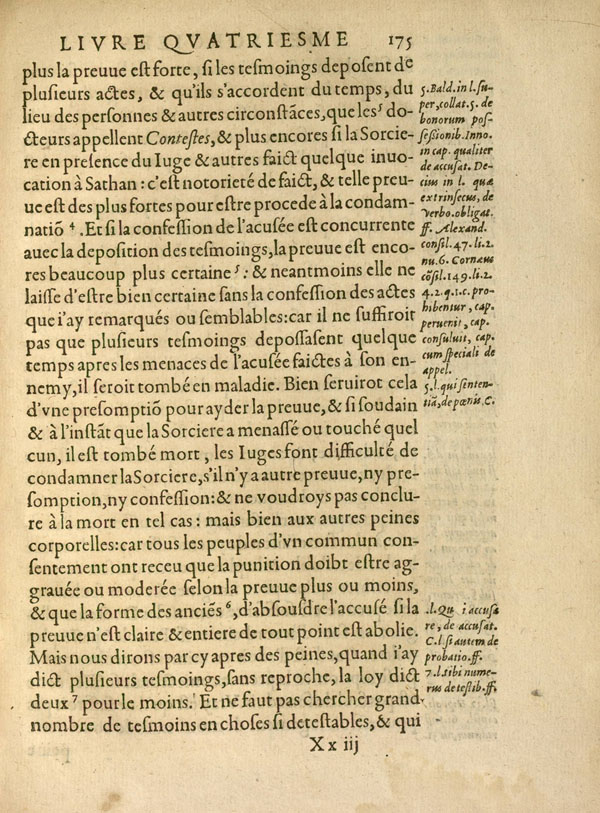 LIVRE QVATRIESME 175
plus la preuue est forte, si les tesmoings deposent de
plusieurs actes, & qu'ils s'accordent du temps, du
lieu des personnes & autres circonstãces, que les ⁵ do-
cteurs appellent Contestes, & plus encores si la Sorcie-
re en presence du Iuge & autres faict quelque inuo-
cation à Sathan: c'est notorieté de faict, & telle preu-
ue est des plus fortes pour estre procede à la condam-
natiõ ⁴. Et si la confession de l'acusée est concurrente
auec la deposition des tesmoings, la preuue est enco-
res beaucoup plus certaine ⁵: & neantmoins elle ne
laisse d'estre bien certaine sans la confession des actes
que i'ay remarqués ou semblables: car il ne suffiroit
pas que plusieurs tesmoings depossasent quelque
temps apres les menaces de l'acusée faictes à son en-
nemy, il seroit tombé en maladie. Bien seruirot cela
d'vne presomptiõ pour ayder la preuue, & si soudain
& à l'instãt que la Sorciere a menassé ou touché quel
cun, il est tombé mort, les Iuges font difficulté de
condamner la Sorciere, s'il n'y a autre preuue, ny pre-
somption, ny confession: & ne voudroys pas conclu-
re à la mort en tel cas: mais bien aux autres peines
corporelles: car tous les peuples d'vn commun con-
sentement ont receu que la punition doibt estre ag-
grauée ou moderée selon la preuue plus ou moins,
& que la forme des anciẽs ⁶, d'absoudre l'accusé si la
preuue n'est claire & entiere de tout point est abolie.
Mais nous dirons par cy apres des peines, quand i'ay
dict plusieurs tesmoings, sans reproche, la loy dict
deux ⁷ pour le moins. Et ne faut pas chercher grand
nombre de tesmoins en choses si detestables, & qui
Xx iij
5. Bald. in l. su-
per, collat. 5. de
bonorum pos-
sessionib. Inno.
in cap. qualiter
de accusat. De-
cius in l. quæ
extrinsecus, de
verbo. obligat.
ff. Alexand.
consil. 47. li. 2.
nu. 6. Corneus
cõsil. 149. li. 2.
4. 2. q. 1. c. pro-
hibentur, cap.
peruenit, cap.
consuluit, cap.
cum speciali de
appel.
5. l. qui senten-
tiã, de pœnis C.
.l. Qu i accusa
re, de accusat.
C. l. si autem de
probatio. ff.
7. l. vbi nume-
rus de testib. ff.